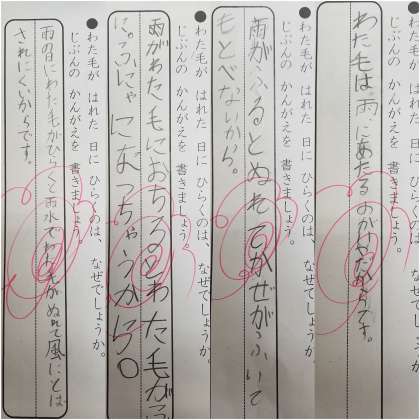 ●わた毛が はれた 日に ひらくのは、なぜでしょうか。
じぶんの かんがえを 書きましょう。
わた毛は、雨に当たるのがいやだからです。
●わた毛が はれた 日に ひらくのは、なぜでしょうか。
じぶんの かんがえを 書きましょう。
雨がふるとぬれてかぜがふいて
もとべないから。
●わた毛が はれた 日に ひらくのは、なぜでしょうか。
じぶんの かんがえを 書きましょう。
雨がわた毛におちるとわた毛が
ふにゃになっちゃうから。
●わた毛が はれた 日に ひらくのは、なぜでしょうか。
じぶんの かんがえを 書きましょう。
雨の日にわた毛がひらくと雨水でわた毛がぬれて風にとば
されにくいからです。